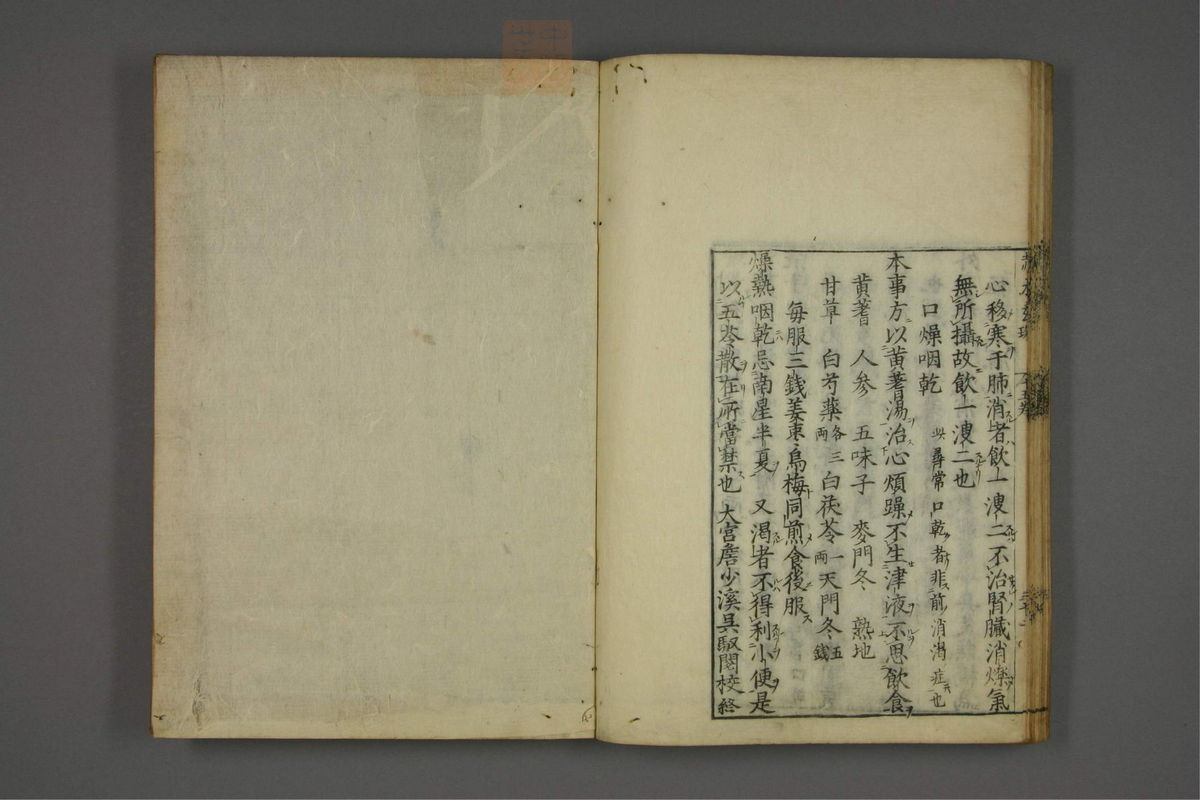 心移寒于肺消者飲一溲二不治腎臓消爍氣
無所攝故飲一溲二也
口燥咽乾 此尋常口乾者非前消渇症也
本事方以黄蓍湯治心煩躁不生津液不思飲食
黄蓍 人参 五味子 麥門冬 熟地
甘草 白芍藥各三両 白茯苓一両 天門冬五銭
毎服三銭姜棗烏梅同煎食後服
燥熱咽乾忌南星半夏 又渇者不得利小便是
以五苓散在所當禁也 大宮詹少溪具馭閲校終